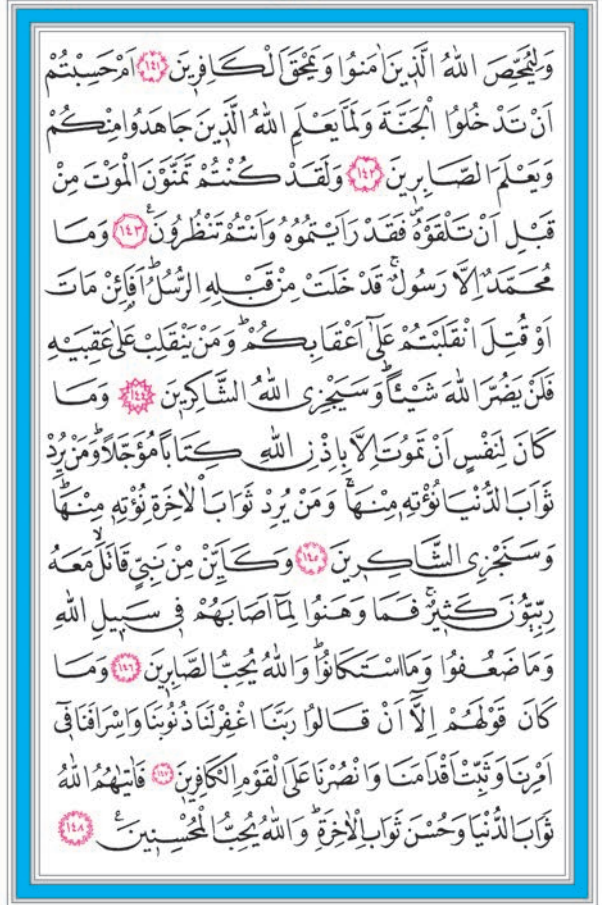 وَلِيُمَحِّصَ اللّٰهُ الَّذ۪ينَ اٰمَنُوا وَيَمْحَقَ الْكَافِر۪ينَ ﴿١٤١﴾ اَمْ حَسِبْتُمْ
اَنْ تَدْخُلُوا الْجَنَّةَ وَلَمَّا يَعْلَمِ اللّٰهُ الَّذ۪ينَ جَاهَدُوا مِنْكُمْ
وَيَعْلَمَ الصَّابِر۪ينَ ﴿١٤٢﴾ وَلَقَدْ كُنْتُمْ تَمَنَّوْنَ الْمَوْتَ مِنْ
قَبْلِ اَنْ تَلْقَوْهُۖ فَقَدْ رَاَيْتُمُوهُ وَاَنْتُمْ تَنْظُرُونَ۟ ﴿١٤٣﴾ وَمَا
مُحَمَّدٌ اِلَّا رَسُولٌۚ قَدْ خَلَتْ مِنْ قَبْلِهِ الرُّسُلُۜ اَفَا۬ئِنْ مَاتَ
اَوْ قُتِلَ انْقَلَبْتُمْ عَلٰٓى اَعْقَابِكُمْۜ وَمَنْ يَنْقَلِبْ عَلٰى عَقِبَيْهِ
فَلَنْ يَضُرَّ اللّٰهَ شَيْـٔاًۜ وَسَيَجْزِي اللّٰهُ الشَّاكِر۪ينَ ﴿١٤٤﴾ وَمَا
كَانَ لِنَفْسٍ اَنْ تَمُوتَ اِلَّا بِاِذْنِ اللّٰهِ كِتَاباً مُؤَجَّلاًۜ وَمَنْ يُرِدْ
ثَوَابَ الدُّنْيَا نُؤْتِه۪ مِنْهَاۚ وَمَنْ يُرِدْ ثَوَابَ الْاٰخِرَةِ نُؤْتِه۪ مِنْهَاۜ
وَسَنَجْزِي الشَّاكِر۪ينَ ﴿١٤٥﴾ وَكَاَيِّنْ مِنْ نَبِيٍّ قَاتَلَۙ مَعَهُ
رِبِّيُّونَ كَث۪يرٌۚ فَمَا وَهَنُوا لِمَٓا اَصَابَهُمْ ف۪ي سَب۪يلِ اللّٰهِ
وَمَا ضَعُفُوا وَمَا اسْتَكَانُواۜ وَاللّٰهُ يُحِبُّ الصَّابِر۪ينَ ﴿١٤٦﴾ وَمَا
كَانَ قَوْلَهُمْ اِلَّٓا اَنْ قَالُوا رَبَّنَا اغْفِرْ لَنَا ذُنُوبَنَا وَاِسْرَافَنَا ف۪ٓي
اَمْرِنَا وَثَبِّتْ اَقْدَامَنَا وَانْصُرْنَا عَلَى الْقَوْمِ الْكَافِر۪ينَ ﴿١٤٧﴾ فَاٰتٰيهُمُ اللّٰهُ
ثَوَابَ الدُّنْيَا وَحُسْنَ ثَوَابِ الْاٰخِرَةِۜ وَاللّٰهُ يُحِبُّ الْمُحْسِن۪ينَ۟ ﴿١٤٨﴾